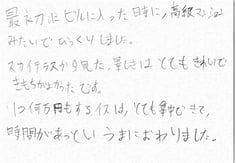 最初にビルに入った時に、高級マンション
みたいでびっくりしました。
スカイテラスから見た、景しきはとてもきれいで
きもちがよかったです。
1つ何万円もするイスは、とても集中できて、
時間があっというまにおわりました。